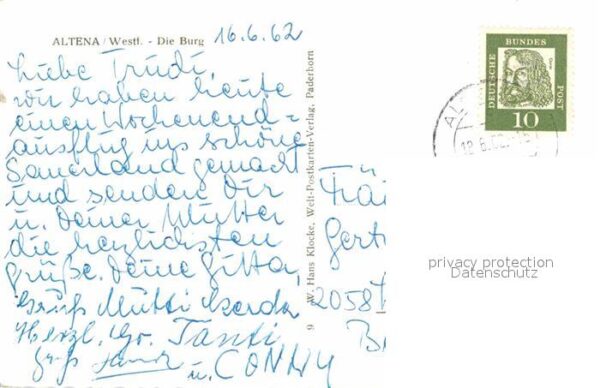 ALTENA / Westf. - Die Burg
16.6.62
Liebe Trudi,
wir haben heute
einen Wochenend=
ausflug ins schöne
Sauerland gemacht
und senden Dir
u. Deiner Mutter
die herzlichsten
Grüße. Deine Gitta,
Gruß Mutti
Herzl. Gr. Tanti
Gruß
u. CONNY
9 W. Hans Klocke, Welt-Postkarten-Verlag, Paderborn
DEUTSCHE BUNDES POST
10
Gert
2058
privacy protection
Datenschutz